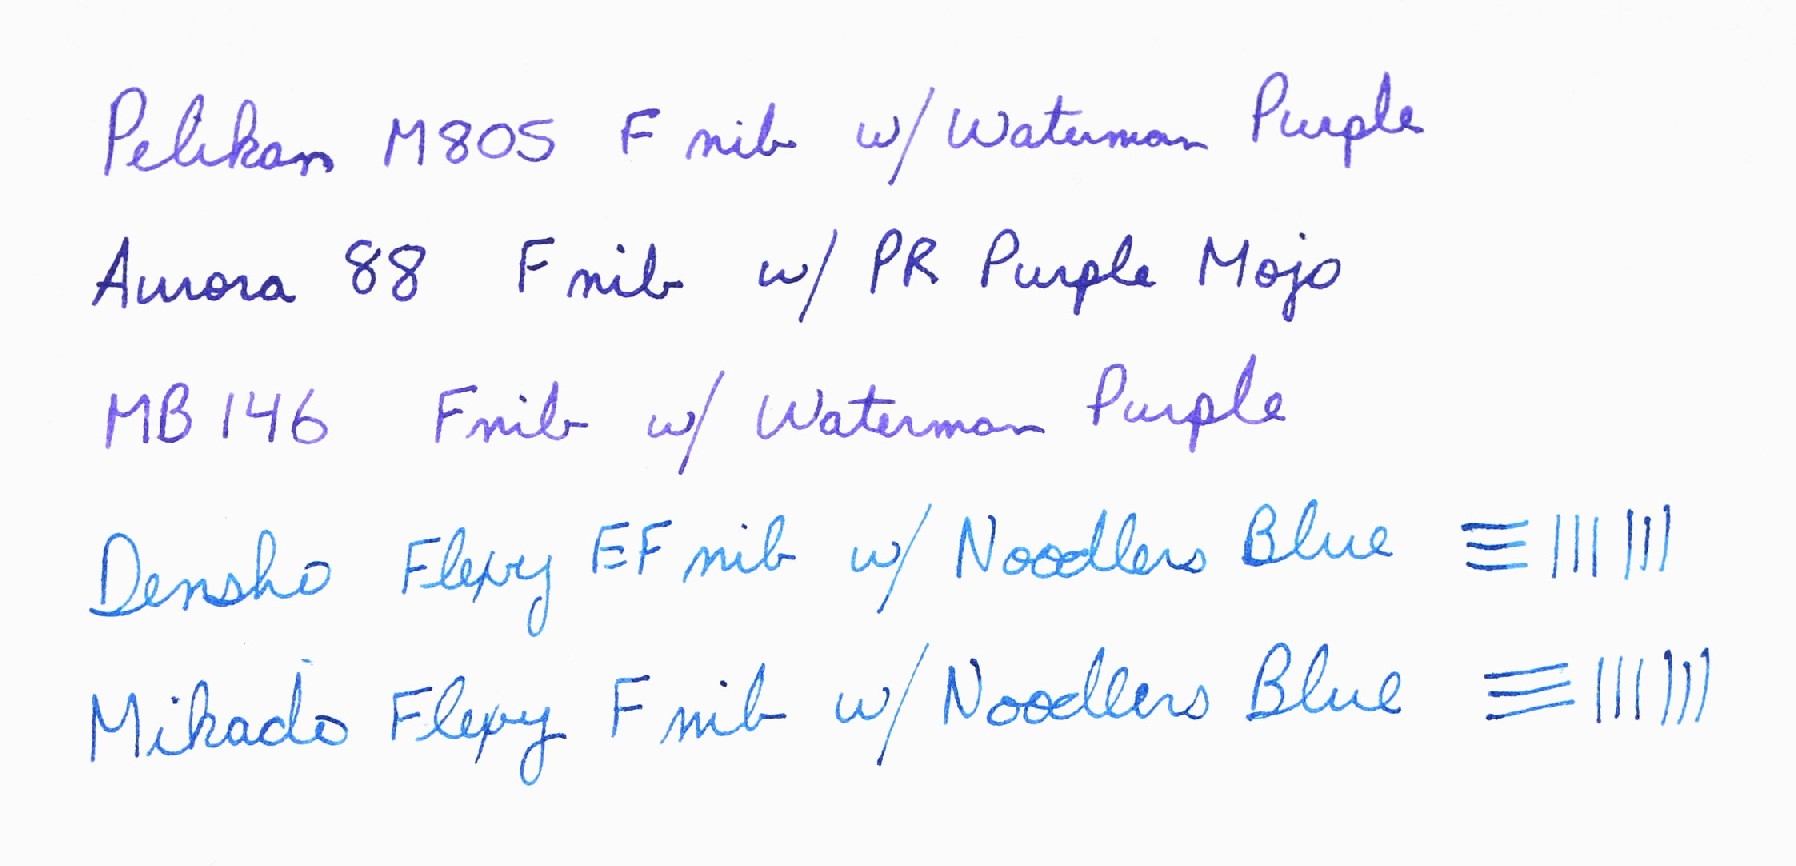 Pelikan M805 F nib w/ Waterman Purple
Aurora 88 F nib w/ PR Purple Mojo
MB 146 F nib w/ Waterman Purple
Densho Flexy EF nib w/ Noodlers Blue
Mikado Flexy F nib w/ Noodlers Blue